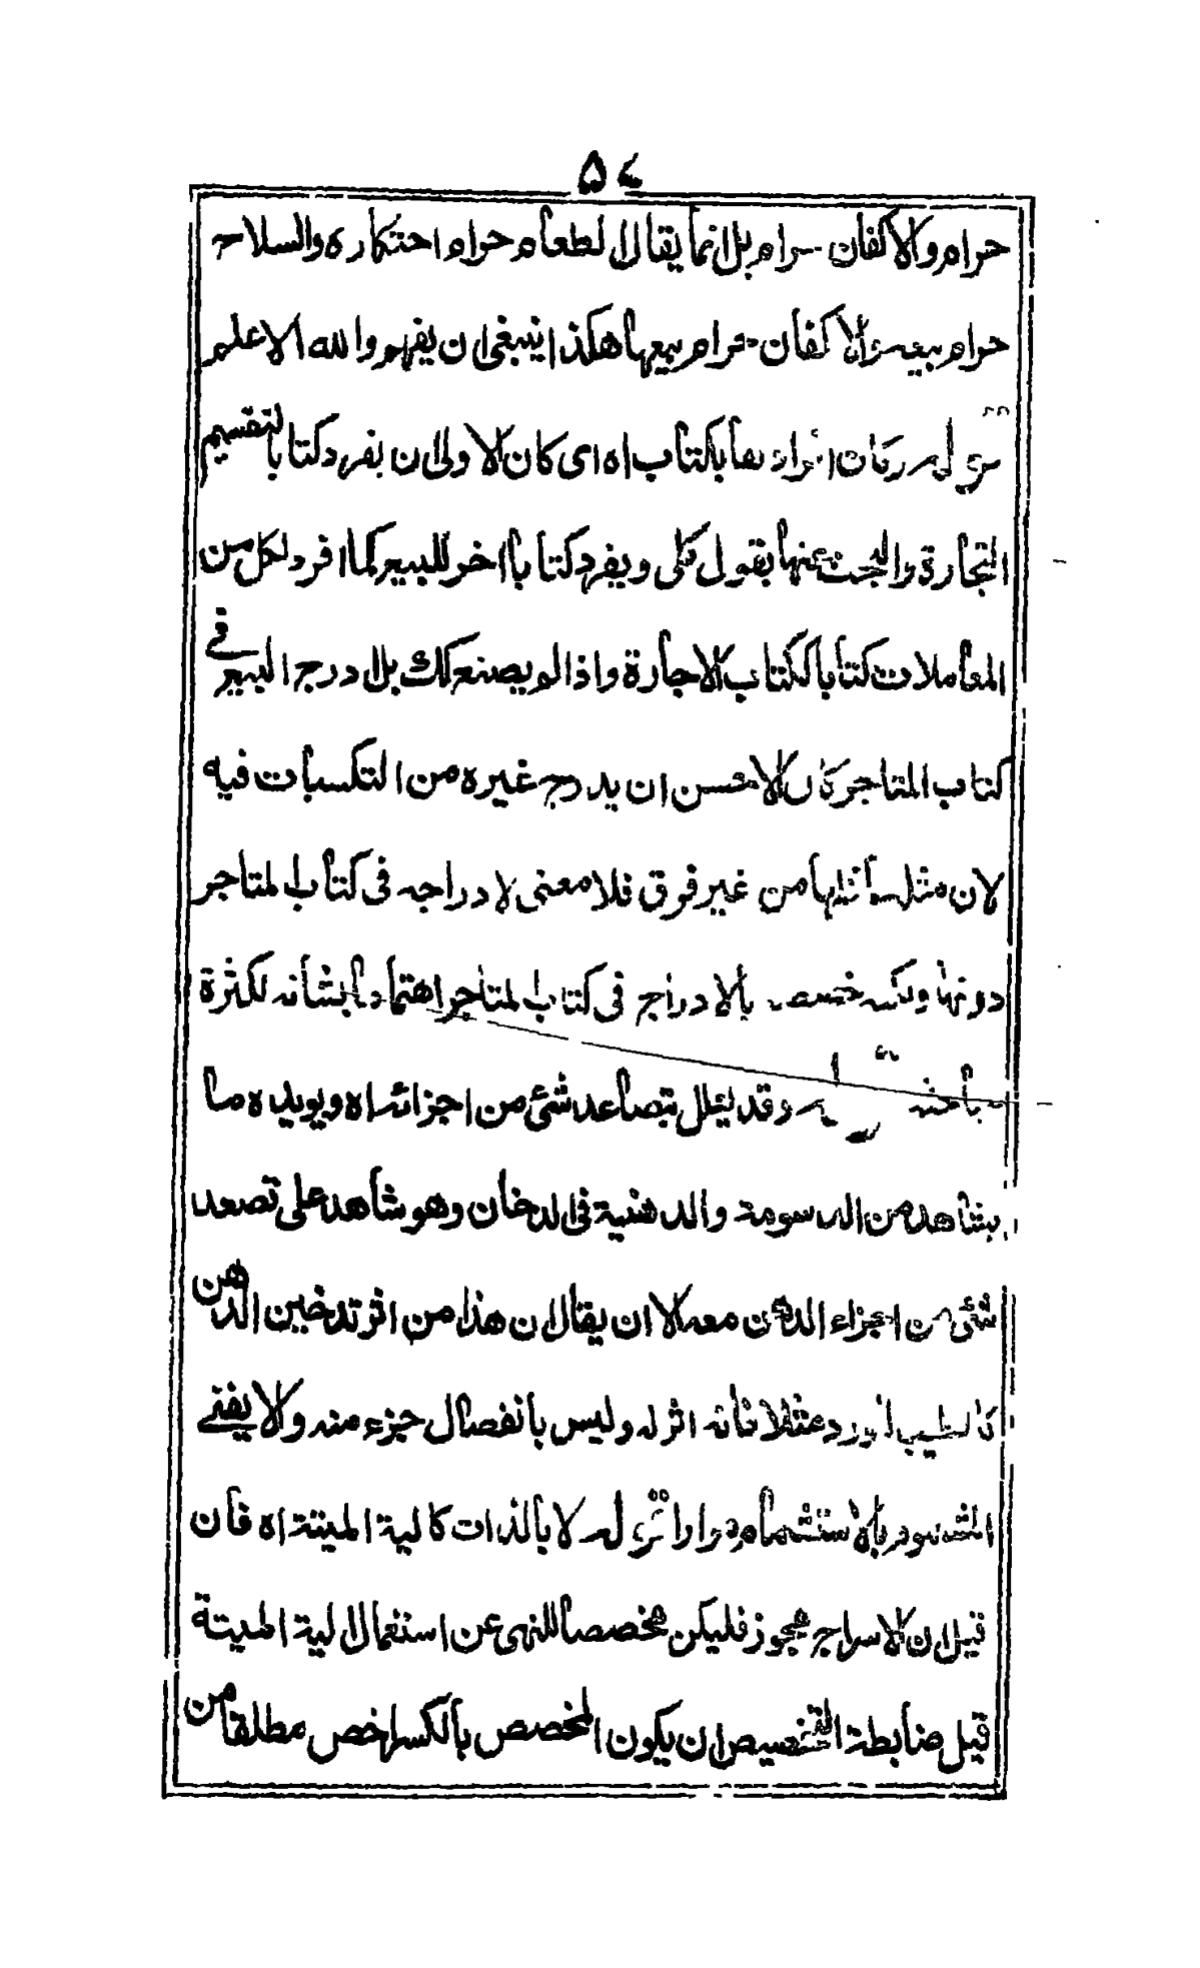 ۵۴
حرام والاكفان حرام بل انما يقال الطعام حرام احتكاره والسلاح
حرام بيعه والاكفان حرام بيعها هكذا ينبغي ان يفهم والله الاعلم
قوله وكان افرادها بكتاب اه اى كان الاولى ان يفرد كتابا لتقسيم
التجارة والبحث عنها بقول كلى ويفرد كتابا اخر للبيع كما افرد لكل من
المعاملات كتابا ككتاب الاجارة واذا لم يصنع كك بل ادرج البيع في
كتاب المتاجر كان الاحسن ان يدرج غيره من التكسبات فيه
لان مثل من غير فرق فلا معنى لادراجه فى كتاب المتاجر
دونها ولكنه خصه بالادراج فى كتاب المتاجر اهتماما بشأنه لكثرة
مباحثه قوله وقد يعلل بتصاعد شئ من اجزائه اه ويويده ما
يشاهد من الدسومة والدهنية فى الدخان وهو شاهد على تصعد
شئ من اجزاء الدهن معه الا ان يقال ان هذا من اثر تدخين الدهن
كالطيب مثلا فانه اثر له وليس بانفصال جزء منه والا يفنى
المشموم بالاستشمام مرارا قوله لا بالذات كالية الميتة اه فان
قيل ان الاسراج يجوز فليكن مخصصا للنهى عن استعمال الية الميتة
قيل ضابطة التخصيص ان يكون المخصص بالكسر اخص مطلقا من